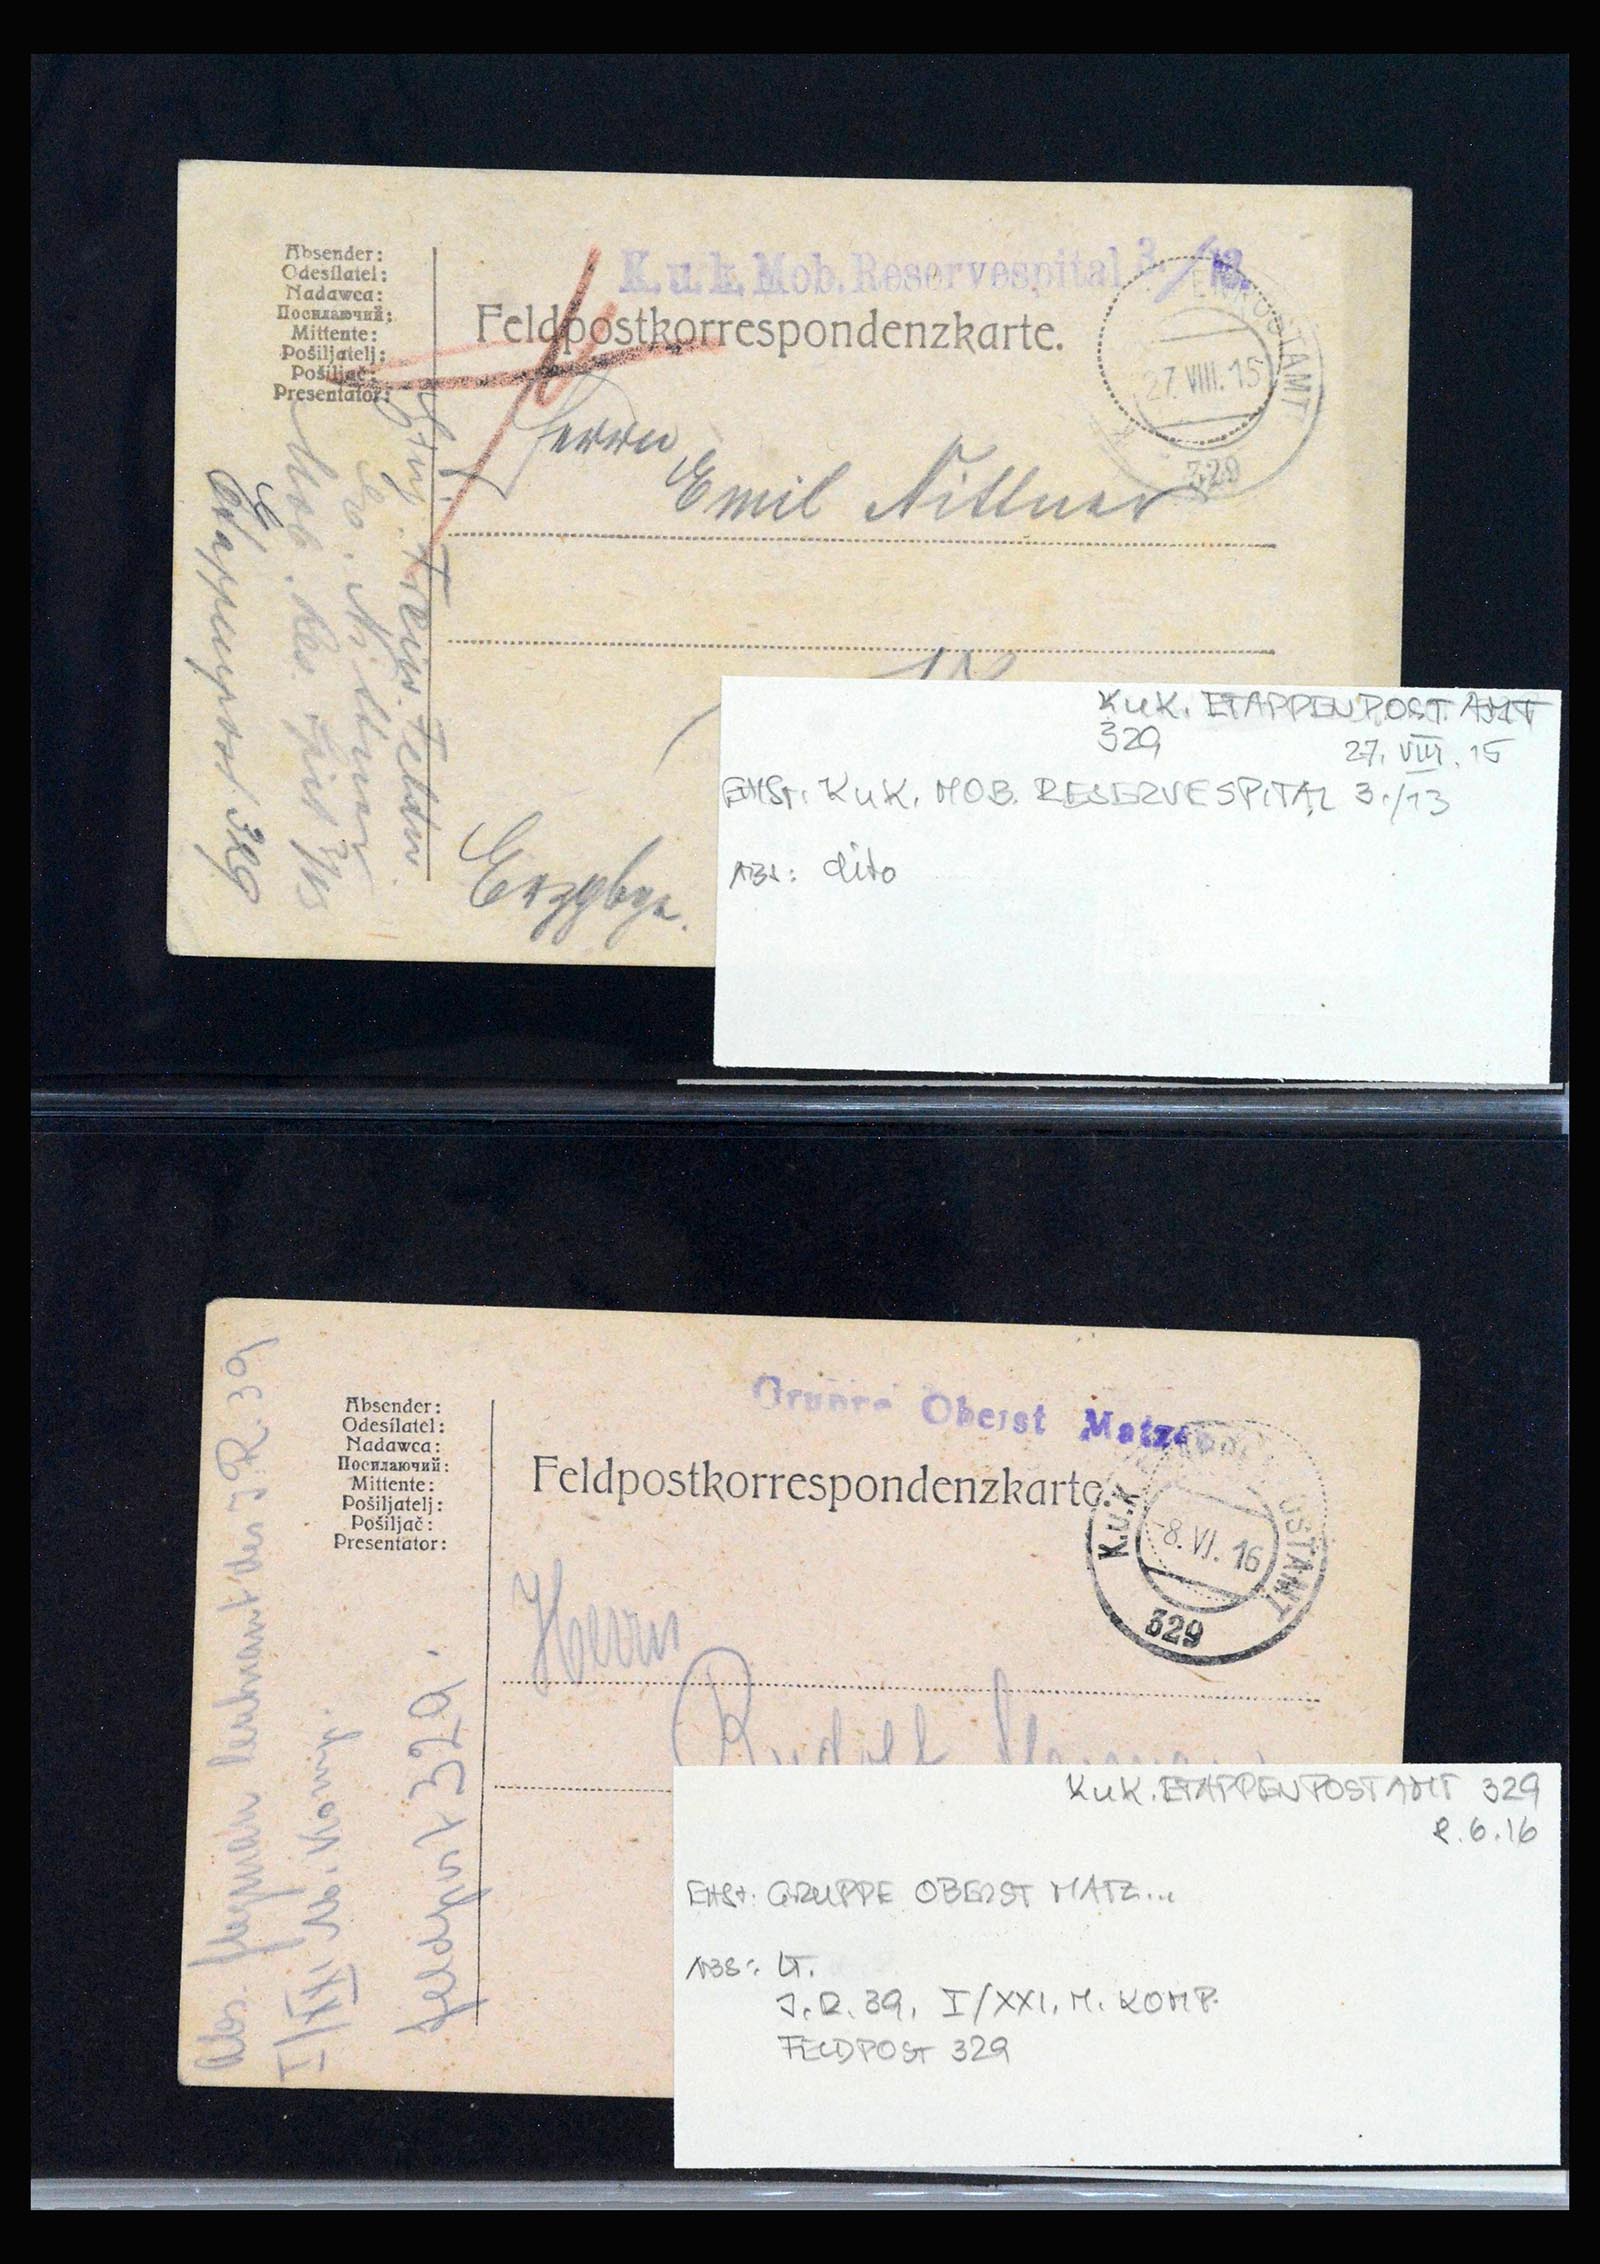 K.u.k. Mob. Reservespital 3./13.
Absender:
Odesílatel:
Nadawca:
Посилаючий:
Mittente:
Pošiljatelj:
Pošiljač:
Presentator:
Feldpostkorrespondenzkarte.
ENPOSTAMT
27.VIII.15
329
Herrn
Emil Nittner
Erzgbge.
Einj. Freiw. Feldw.
Nittner
Mob. Res. Spit 3/13
Etappenpost 329
KuK. ETAPPENPOSTAMT
329
27. VIII. 15
EHSt. KuK. MOB. RESERVESPITAL 3./13
ABS: dito
Gruppe Oberst Matz
Absender:
Odesílatel:
Nadawca:
Посилаючий:
Mittente:
Pošiljatelj:
Pošiljač:
Presentator:
Feldpostkorrespondenzkarte.
K.u.K. OSTAMT
-8.VI.16
329
Herrn
Rudolf
Abs. Leutnant des J.R. 39
I/XXI. M. Komp.
Feldpost 329.
KuK. ETAPPENPOSTAMT 329
8.6.16
EHSt. GRUPPE OBERST MATZ...
ABS: LT.
J.R. 39, I/XXI. M. KOMP.
FELDPOST 329